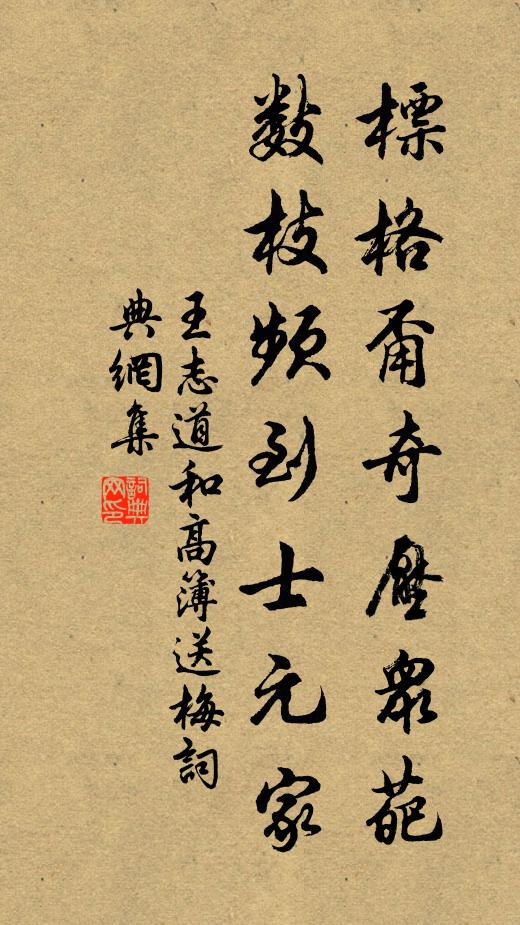 標格甭奇壓衆葩
數枝頻到士元家
王志道和高簿送梅詞
典網集
詞典网印